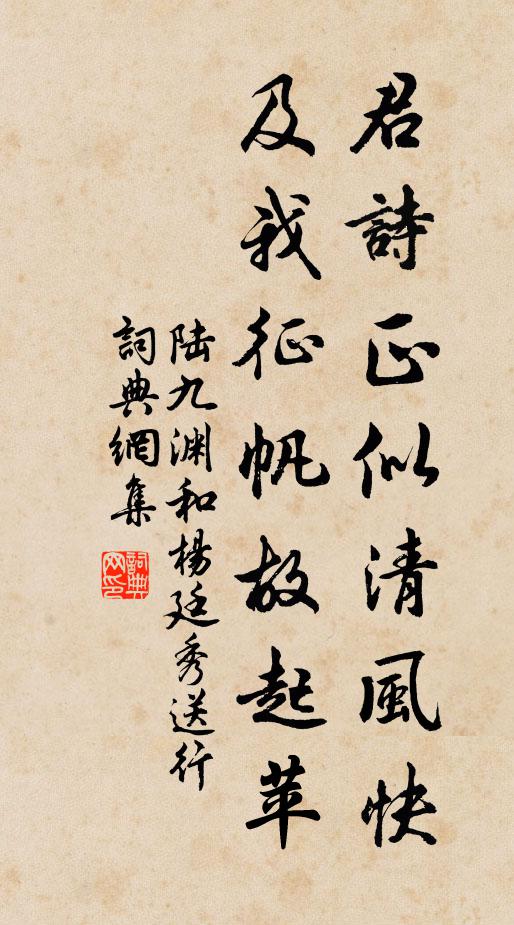 君詩正似清風快
及我征帆故起苹
陸九渊和楊廷秀送行
詞典網集
詞典網印